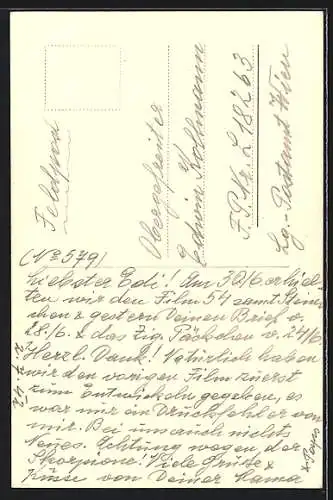 Feldpost
Obergefreiter
Edwin Kollmann
F.P.Nr. L 18263
Lg.-Postamt Wien
(No 579)
Liebster Edi! Am 30/6. erhiel-
ten wir den Film 54 samt
& gestern Deinen Brief v.
28./6. & das Zig. Päckchen v. 24/6.
Herzl. Dank! Natürlich haben
wir den vorigen Film zuerst
zum Entwickeln gegeben, es
war nur ein Druckfehler von
mir. Bei uns auch nichts
Neues. Achtung wegen der
Skorpione. Viele Grüsse &
Küsse von Deiner Mama
& Papa